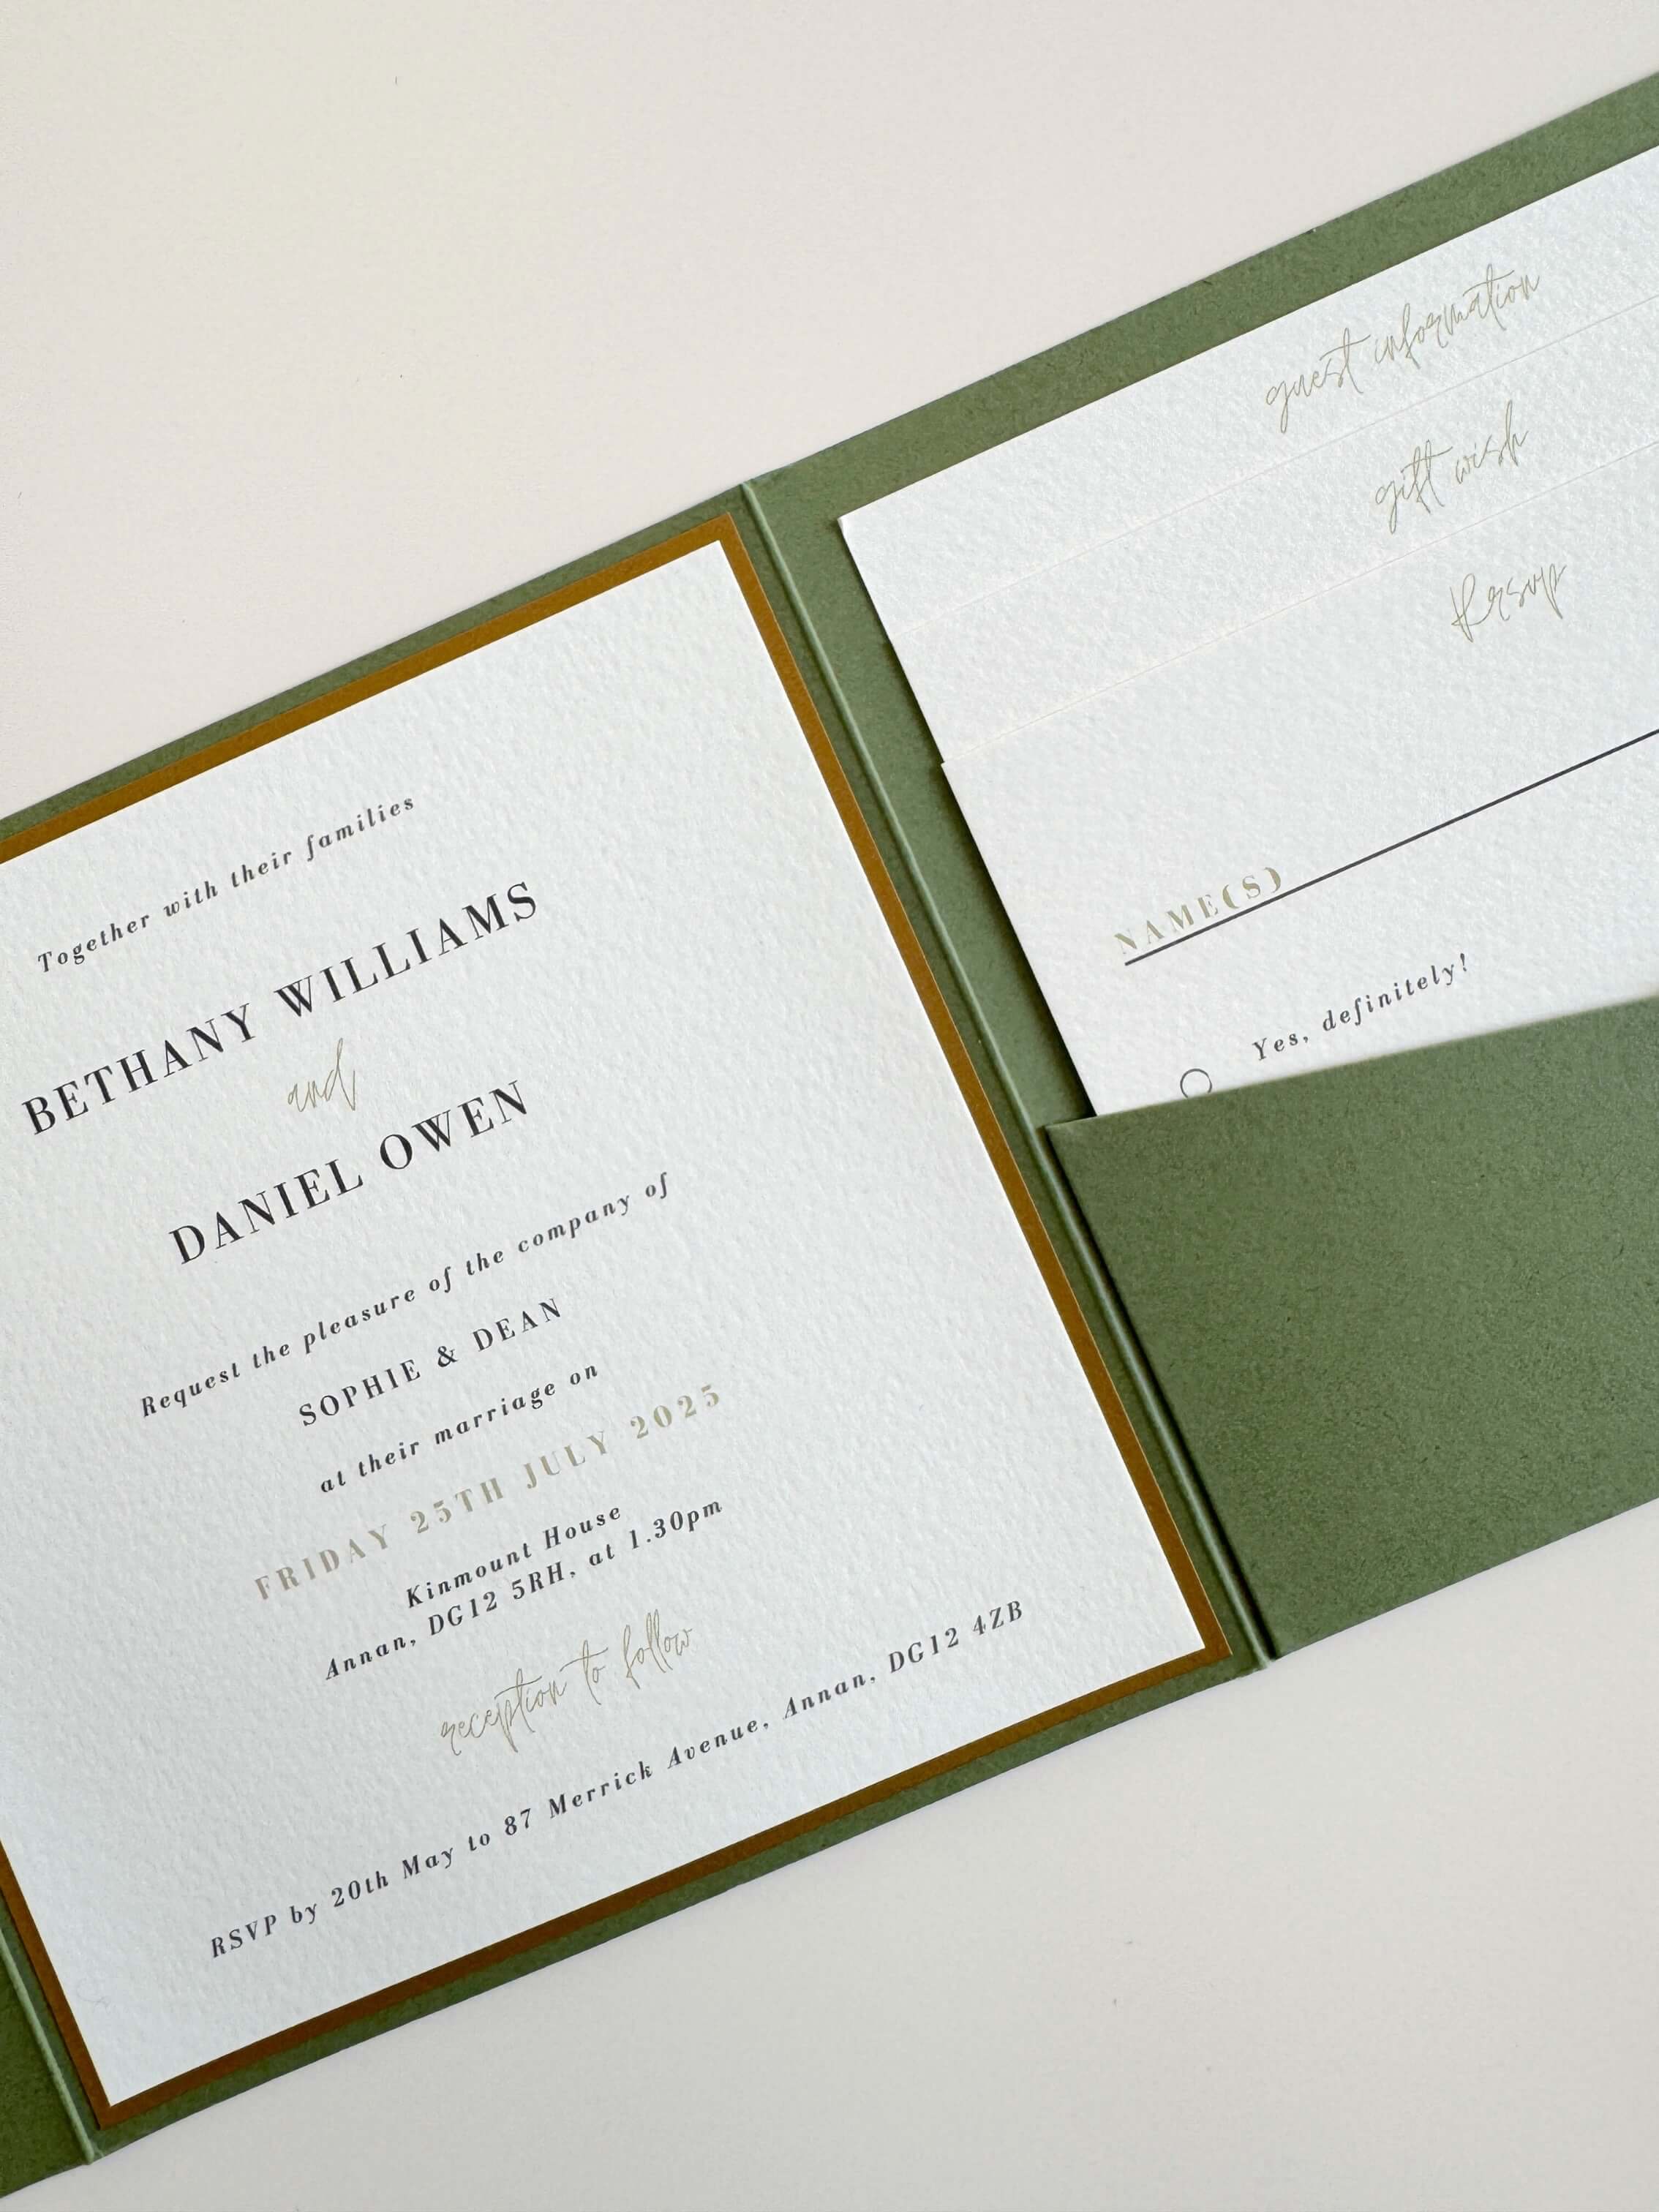 Together with their families
BETHANY WILLIAMS
and
DANIEL OWEN
Request the pleasure of the company of
SOPHIE & DEAN
at their marriage on
FRIDAY 25TH JULY 2025
Kinmount House
Annan, DG12 5RH, at 1.30pm
reception to follow
RSVP by 20th May to 87 Merrick Avenue, Annan, DG12 4ZB
guest information
gift wish
Rsvp
NAME(S)
Yes, definitely!